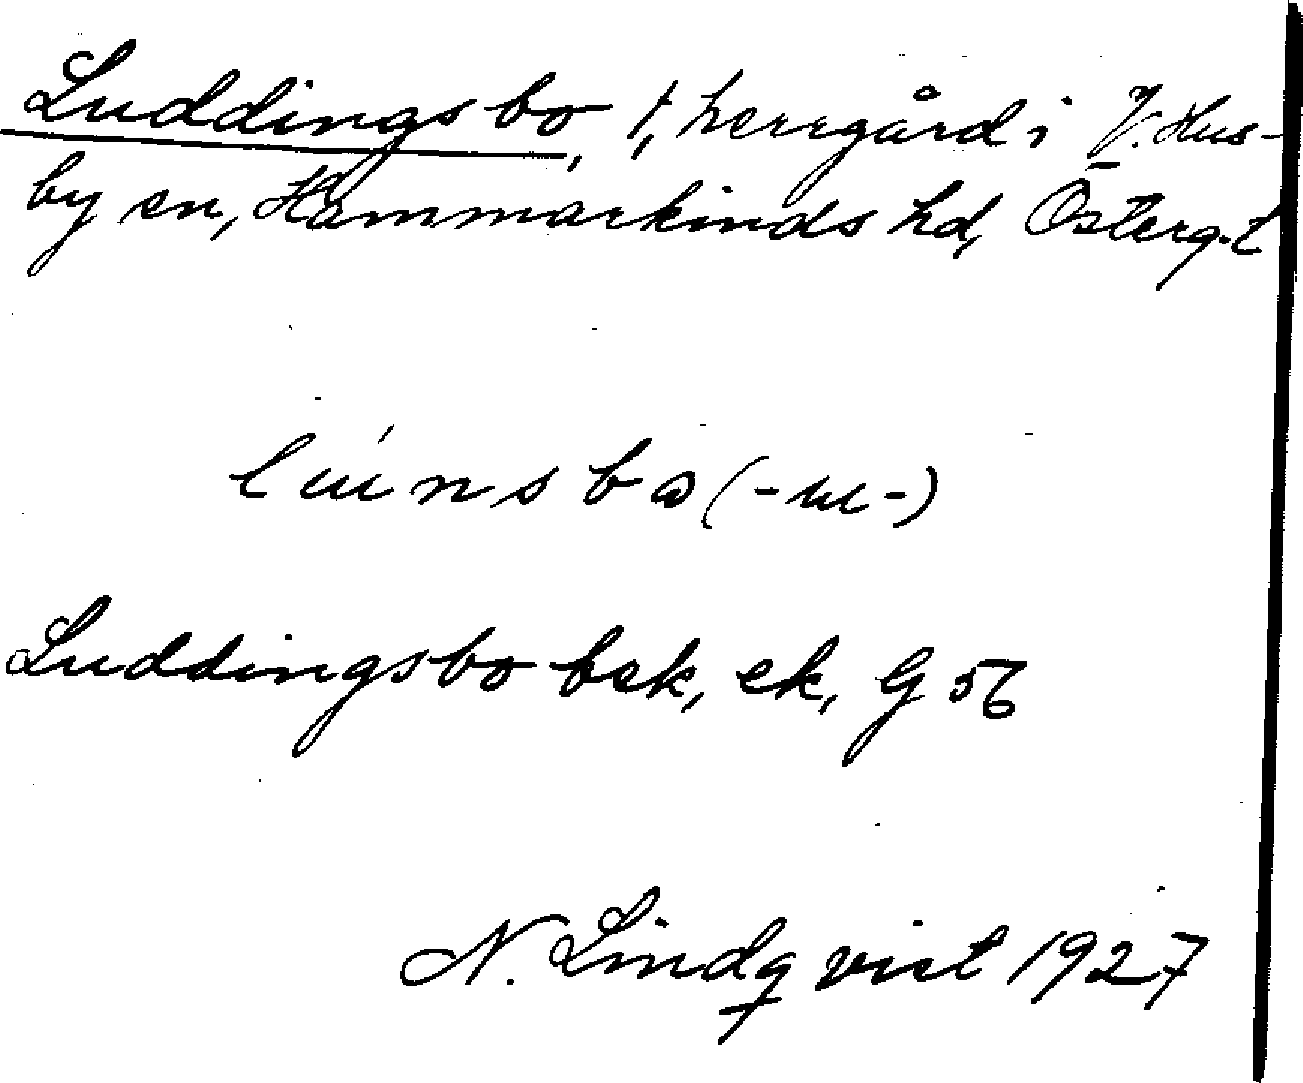 Luddingsbo, 1, herrgård i V. Hus-
by sn, Hammarkinds hd, Österg.l
lúnsbo (-u-)
Luddingsbo bek, ek, G 56
N. Lindqvist 1927